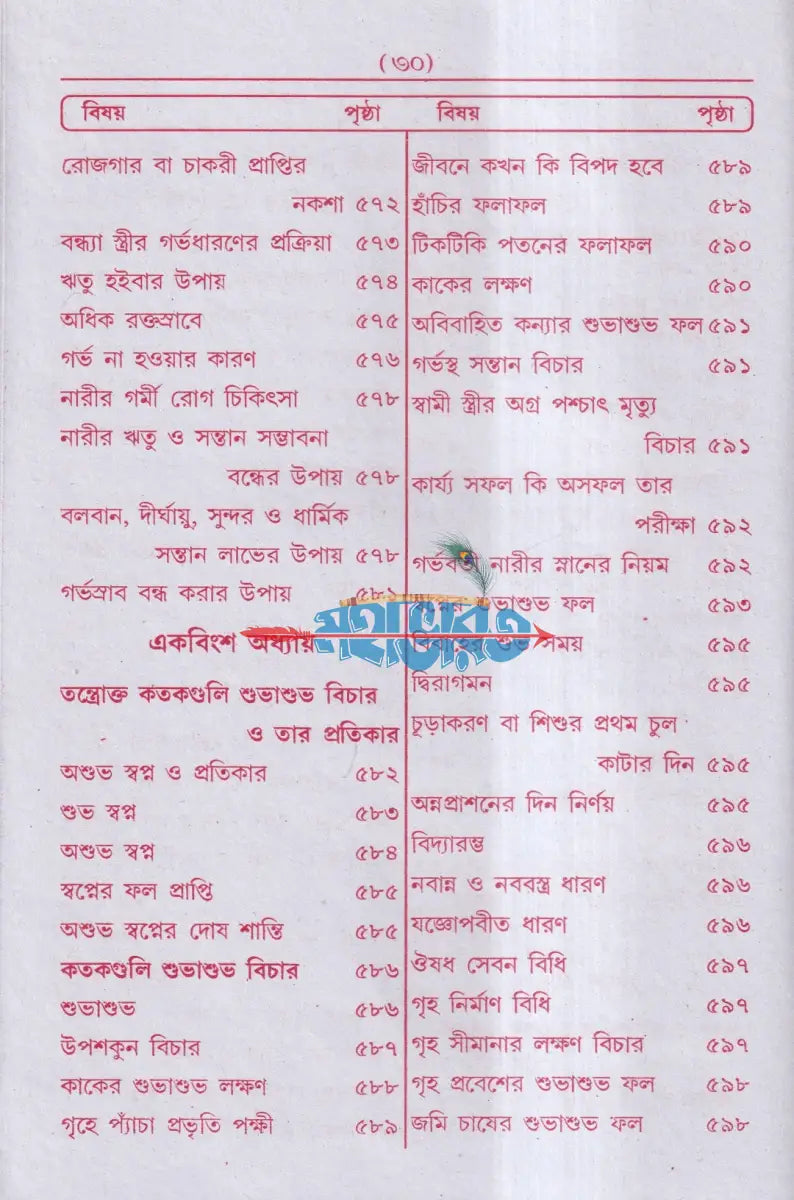 (৩০)
বিষয় পৃষ্ঠা বিষয় পৃষ্ঠা
রোজগার বা চাকরী প্রাপ্তির
নকশা ৫৭২
বন্ধ্যা স্ত্রীর গর্ভধারণের প্রক্রিয়া ৫৭৩
ঋতু হইবার উপায় ৫৭৪
অধিক রক্তস্রাবে ৫৭৫
গর্ভ না হওয়ার কারণ ৫৭৬
নারীর গর্মী রোগ চিকিৎসা ৫৭৮
নারীর ঋতু ও সন্তান সম্ভাবনা
বন্ধের উপায় ৫৭৮
বলবান, দীর্ঘায়ু, সুন্দর ও ধার্মিক
সন্তান লাভের উপায় ৫৭৮
গর্ভস্রাব বন্ধ করার উপায় ৫৮১
একবিংশ অধ্যায়
তন্ত্রোক্ত কতকগুলি শুভাশুভ বিচার
ও তার প্রতিকার
অশুভ স্বপ্ন ও প্রতিকার ৫৮২
শুভ স্বপ্ন ৫৮৩
অশুভ স্বপ্ন ৫৮৪
স্বপ্নের ফল প্রাপ্তি ৫৮৫
অশুভ স্বপ্নের দোষ শান্তি ৫৮৫
কতকগুলি শুভাশুভ বিচার ৫৮৬
শুভাশুভ ৫৮৬
উপশকুন বিচার ৫৮৭
কাকের শুভাশুভ লক্ষণ ৫৮৮
গৃহে প্যাঁচা প্রভৃতি পক্ষী ৫৮৯
জীবনে কখন কি বিপদ হবে ৫৮৯
হাঁচির ফলাফল ৫৮৯
টিকটিকি পতনের ফলাফল ৫৯০
কাকের লক্ষণ ৫৯০
অবিবাহিত কন্যার শুভাশুভ ফল ৫৯১
গর্ভস্থ সন্তান বিচার ৫৯১
স্বামী স্ত্রীর অগ্র পশ্চাৎ মৃত্যু
বিচার ৫৯১
কার্য্য সফল কি অসফল তার
পরীক্ষা ৫৯২
গর্ভবতী নারীর স্নানের নিয়ম ৫৯২
ফল ৫৯৩
বিবাহের শুভ সময় ৫৯৫
দ্বিরাগমন ৫৯৫
চূড়াকরণ বা শিশুর প্রথম চুল
কাটার দিন ৫৯৫
অন্নপ্রাশনের দিন নির্ণয় ৫৯৫
বিদ্যারম্ভ ৫৯৬
নবান্ন ও নববস্ত্র ধারণ ৫৯৬
যজ্ঞোপবীত ধারণ ৫৯৬
ঔষধ সেবন বিধি ৫৯৭
গৃহ নির্মাণ বিধি ৫৯৭
গৃহ সীমানার লক্ষণ বিচার ৫৯৭
গৃহ প্রবেশের শুভাশুভ ফল ৫৯৮
জমি চাষের শুভাশুভ ফল ৫৯৮
মহাভারত